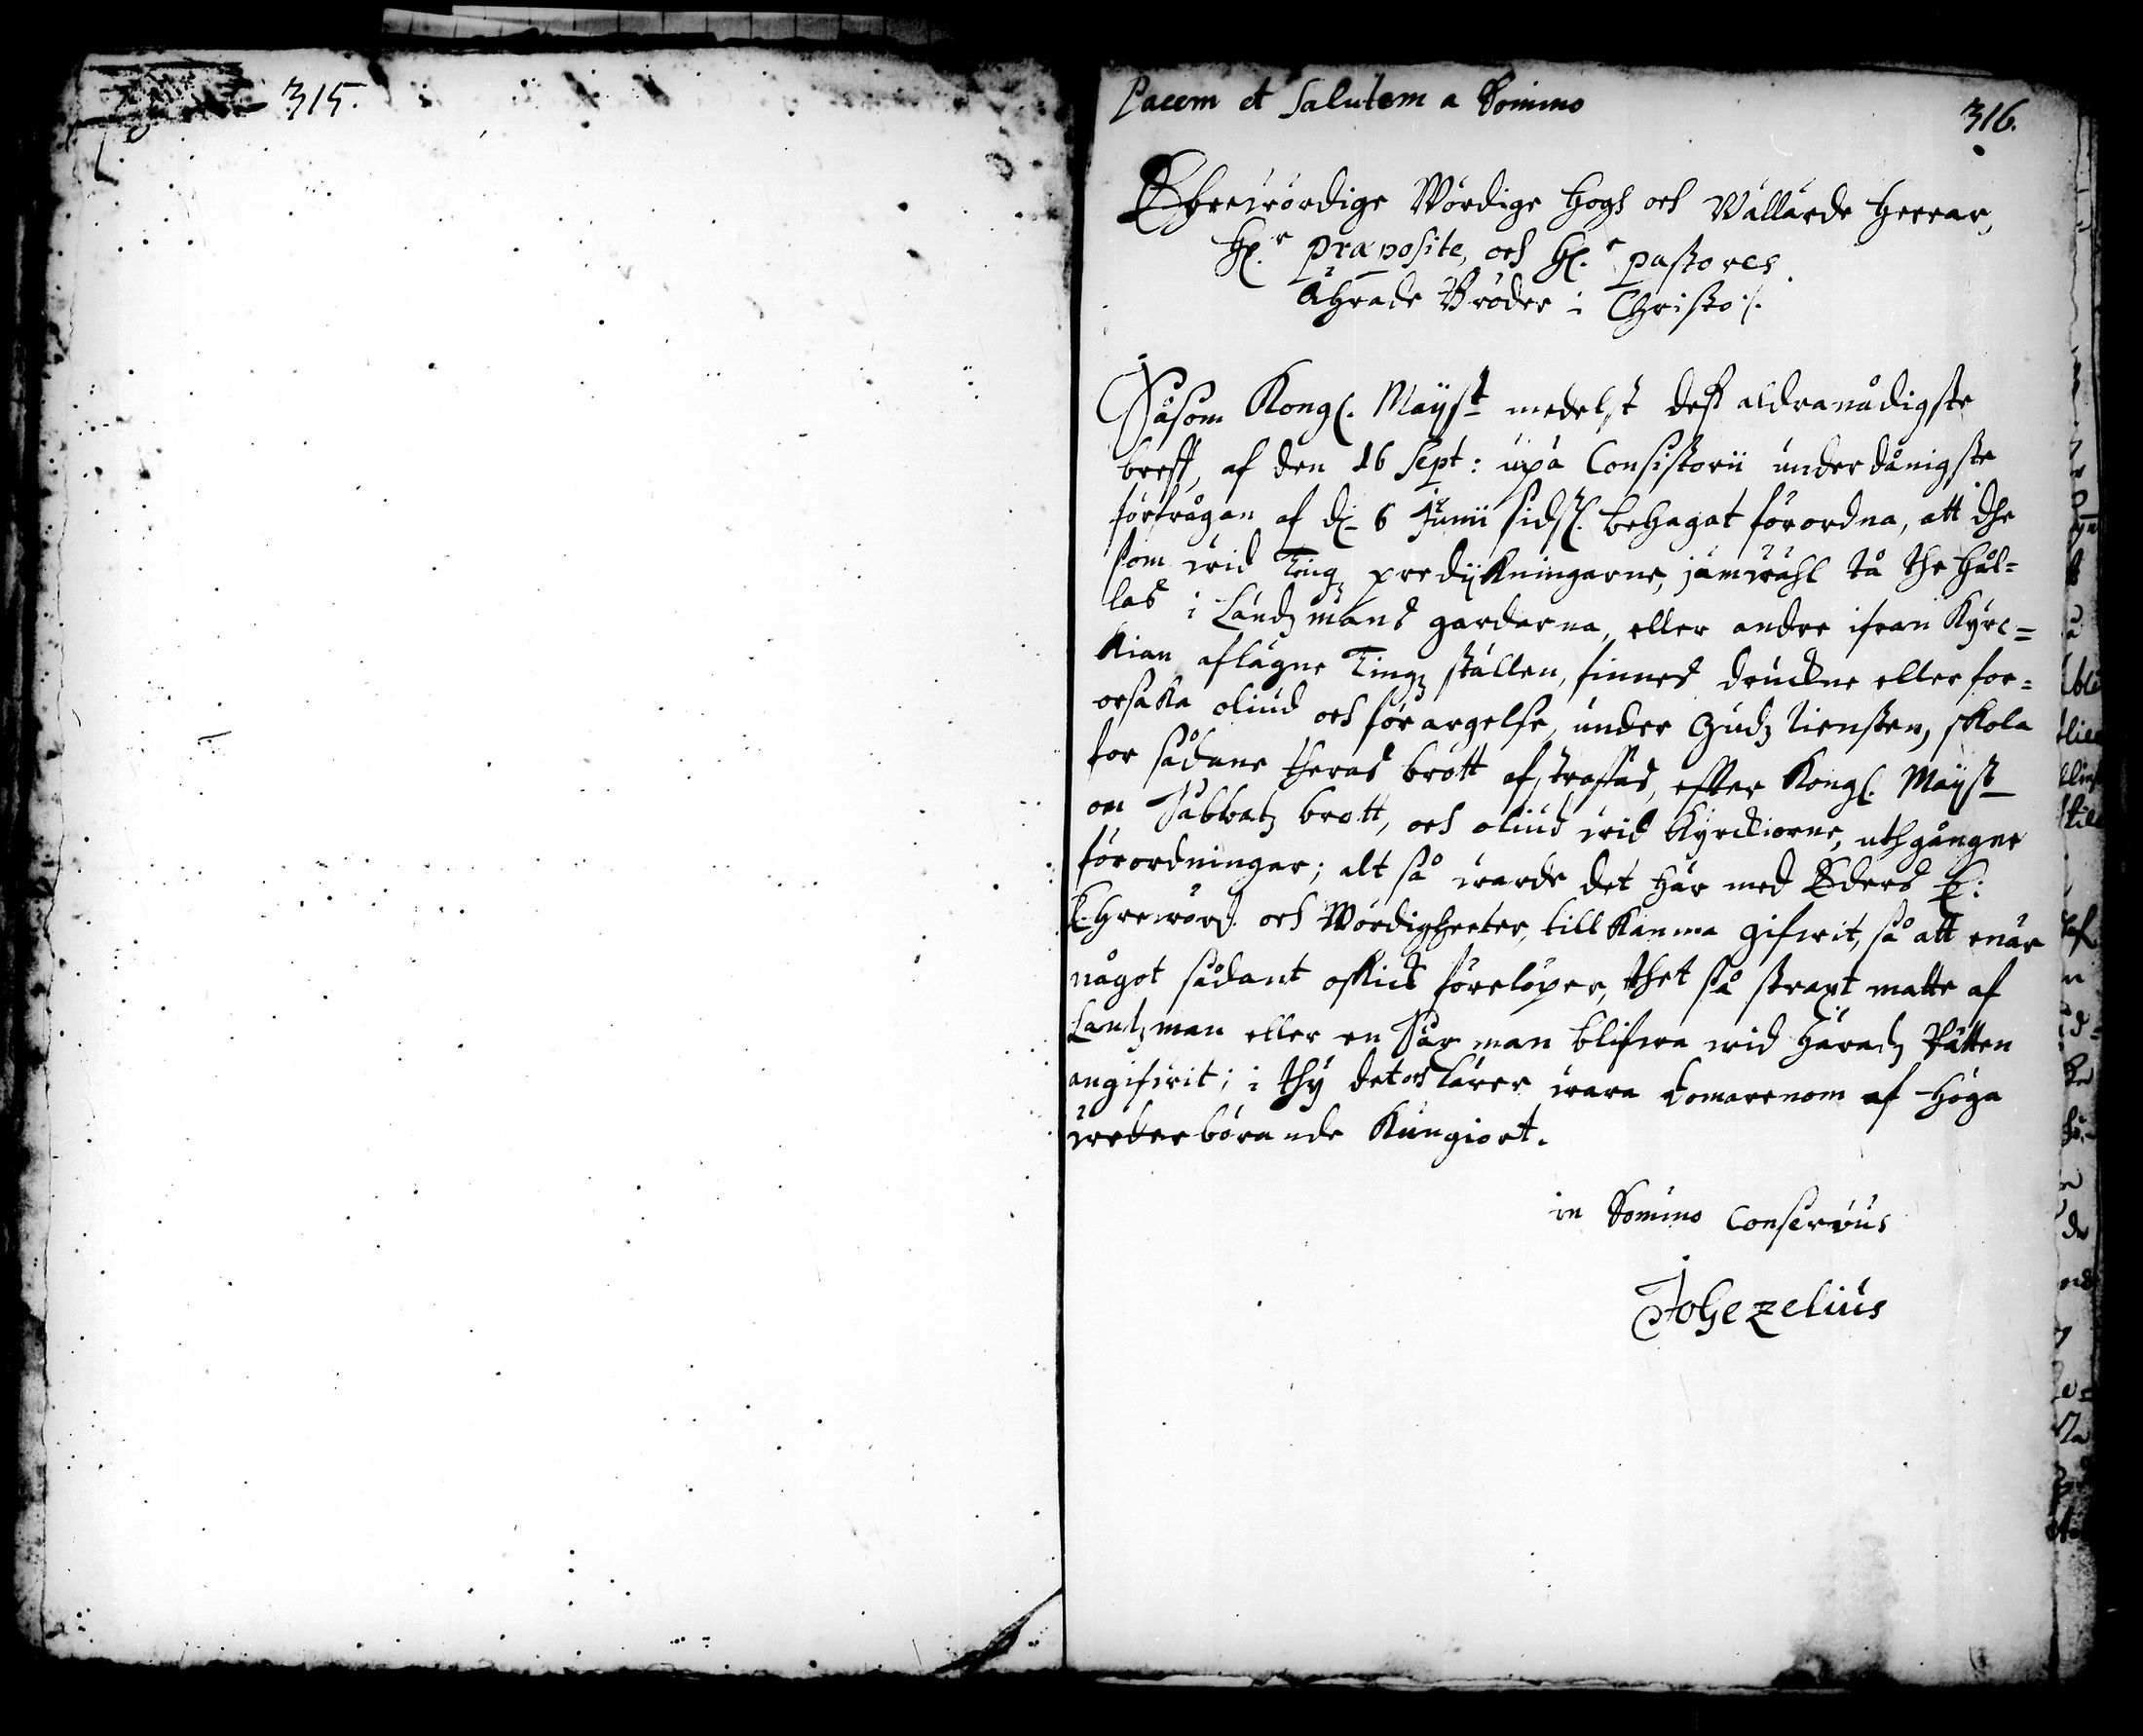 315.
Pacem et Salutem a Domino
316.
Ehrewördige Wördige Högh och Wällärde Herrar,
H.r præposite, och H.r pastores.
ährade Bröder i Christo ./.
Såsom Kongl. Maijst medelst dess aldranådigste
breff, af den 16 Sept: uppå Consistorii underdånigste
förfrågan af d. 6 Junii sidstl. behagat förordna, att dhe
som wid Tingz predijkningarne, jämwähl tå the hål=
las i Landzmans gårdarna, eller andre ifran Kyrc=
kian aflägne Tingz ställen, finnes druckne eller för=
orsaka oliud och förargelse, under Gudz tiensten, skola
för sådane theras brott afstraffas, effter Kongl. Maijst
om Sabbatz brott, och oliud wid Kyrckiorne, uthgångne
förordningar; alt så warde det här med Eders E:
Ehrewörd. och Wördigheeter, till känna gifwit, så att enär
något sådant oskick förelöper, thet så straxt måtte af
Landzman eller en Säxman blifwa wid Häradz Rätten
angifwit; i thy det och lärer wara domarenom af höga
wederbörande Kungiort.
in Domino Conservus
JoGezelius